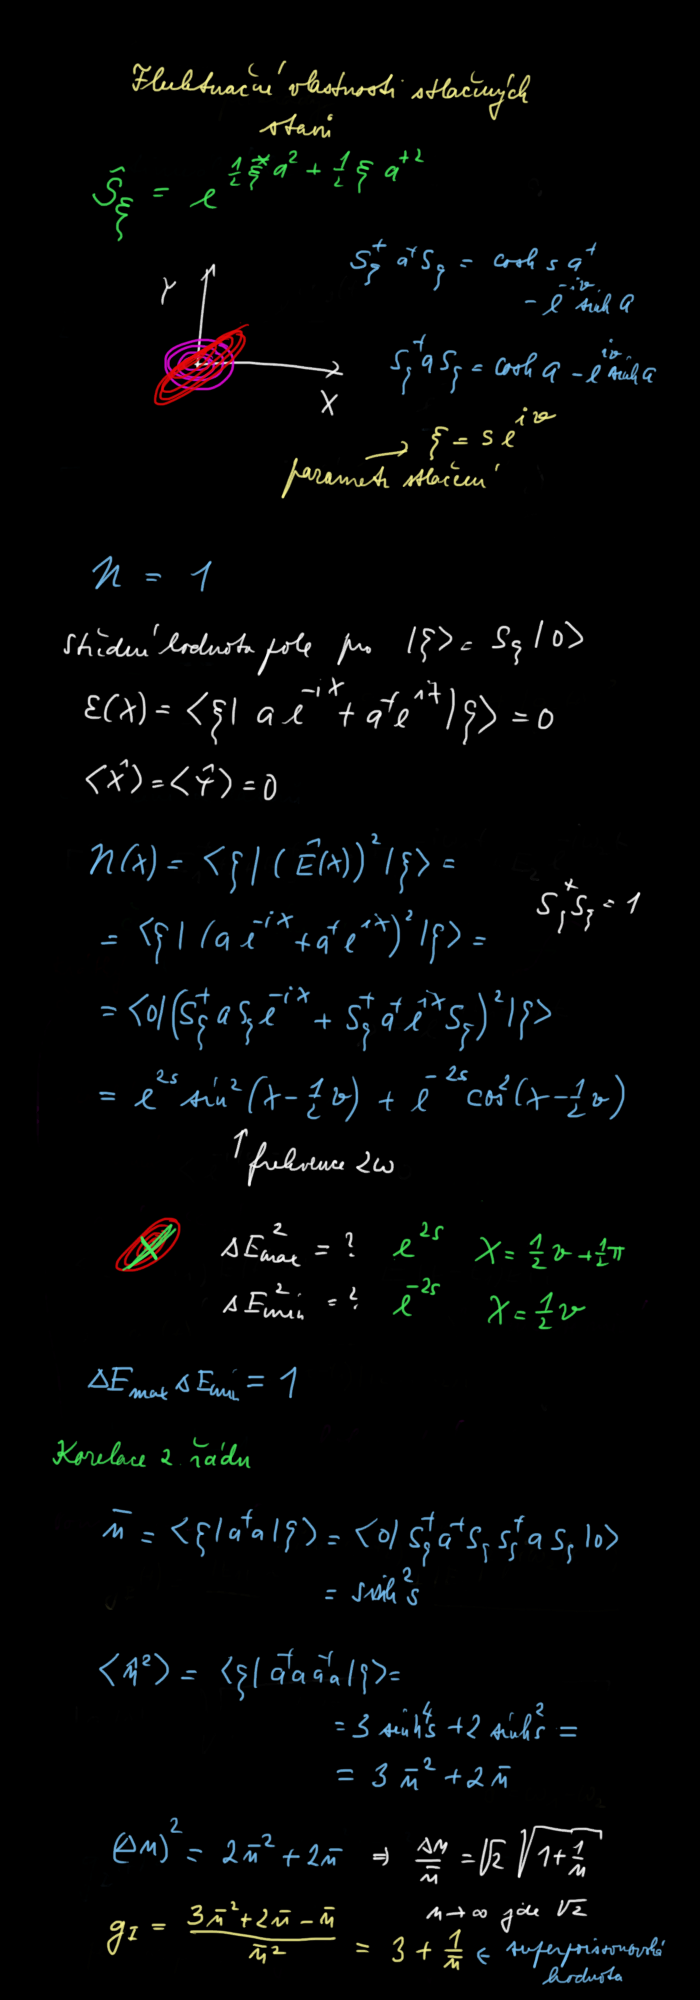 Fluktuační vlastnosti stlačených
stavů
Ŝ_ξ = e^{½ξ* a² + ½ξ a^{+2}}
S_ξ^+ a^+ S_ξ = cosh s a^+
- e^{-iϑ} sinh a
Y
S_ξ^+ a S_ξ = cosh a - e^{iϑ} sinh a
X
ξ = s e^{iϑ}
parametr stlačení
N = 1
střední hodnota pole pro |ξ> = S_ξ |0>
ε(χ) = <ξ| a e^{-iχ} + a^+ e^{iχ} |ξ> = 0
<X̂> = <Ŷ> = 0
N(χ) = <ξ| (Ê(χ))² |ξ> =
S_ξ^+ S_ξ = 1
= <ξ| (a e^{-iχ} + a^+ e^{iχ})² |ξ> =
= <0| (S_ξ^+ a S_ξ e^{-iχ} + S_ξ^+ a^+ e^{iχ} S_ξ)² |ξ>
= e^{2s} sin² (χ - ½ϑ) + e^{-2s} cos² (χ - ½ϑ)
↑ frekvence 2ω
ΔE²_max = ? e^{2s} χ = ½ϑ + ½π
ΔE²_min = ? e^{-2s} χ = ½ϑ
ΔE_max ΔE_min = 1
Korelace 2. řádu
n̄ = <ξ| a^+ a |ξ> = <0| S_ξ^+ a^+ S_ξ S_ξ^+ a S_ξ |0>
= sinh² s
<n̂²> = <ξ| a^+ a a^+ a |ξ> =
= 3 sinh⁴ s + 2 sinh² s =
= 3 n̄² + 2 n̄
(Δn)² = 2n̄² + 2n̄ ⇒ Δn/n̄ = √2 √(1 + 1/n̄)
n → ∞ jde √2
g_I = (3n̄² + 2n̄ - n̄)/n̄² = 3 + 1/n̄ ∈ superpoissonovská
hodnota